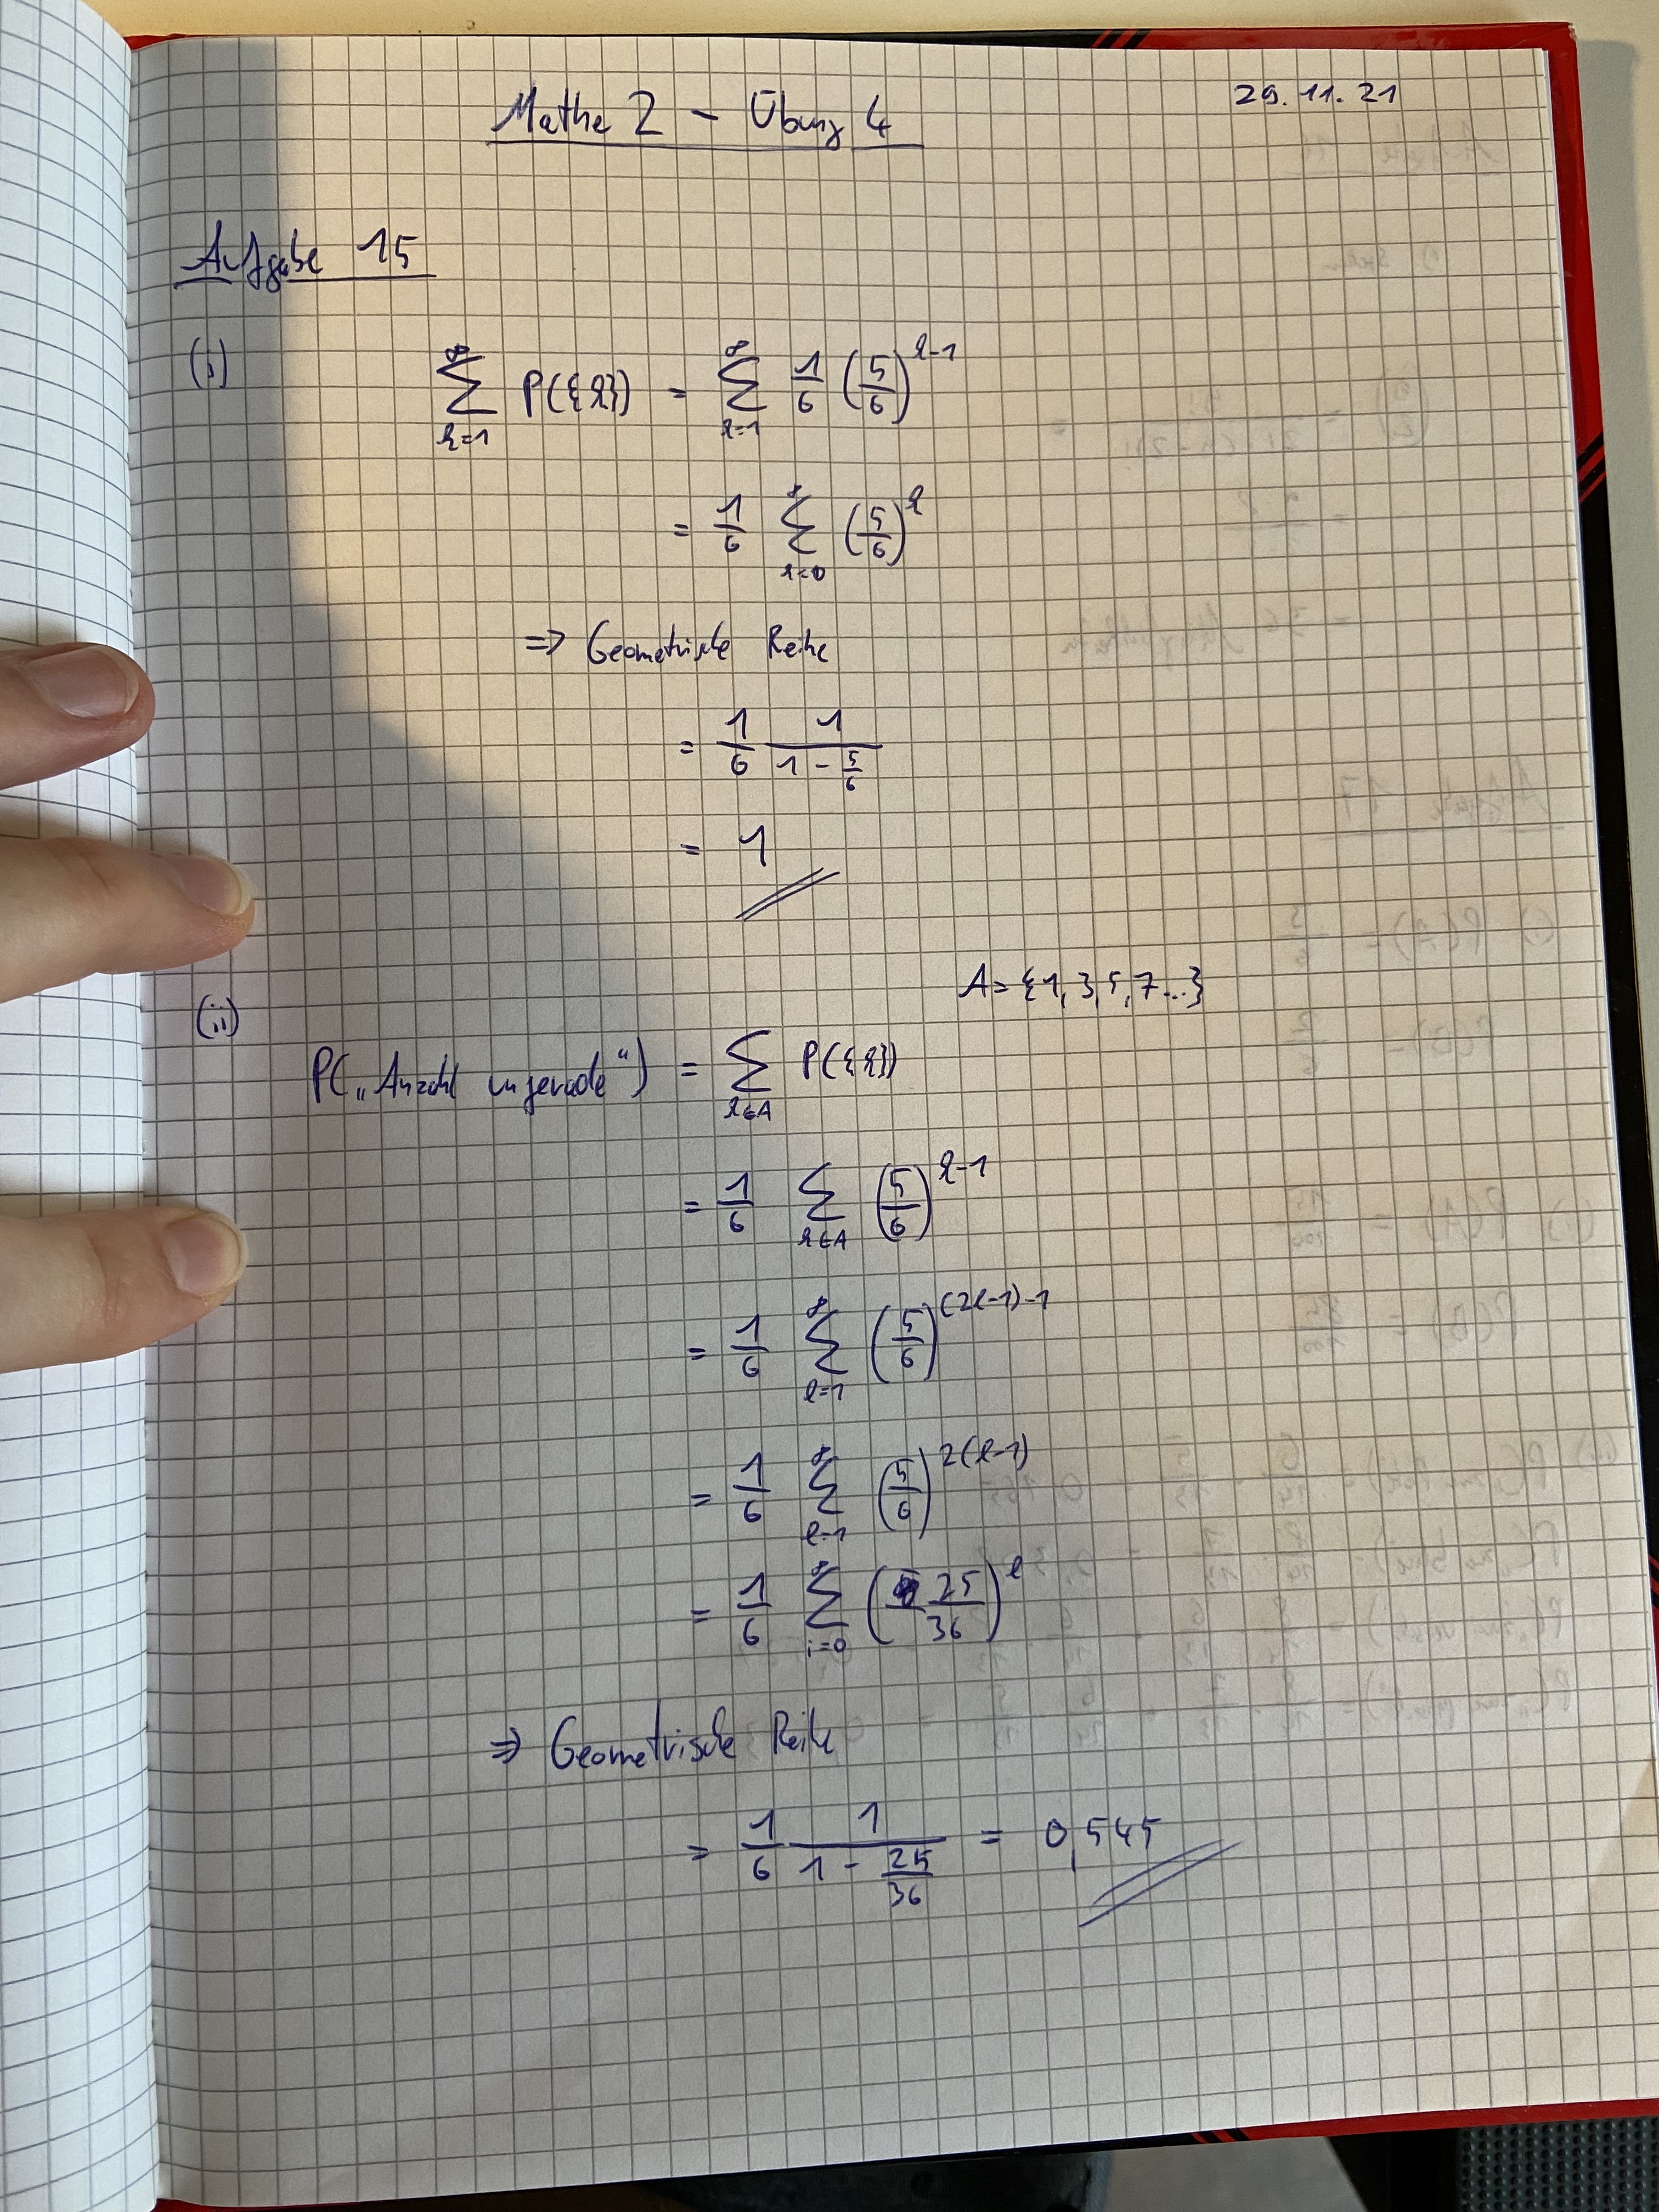 Mathe 2 - Übung 4
29.11.21
Aufgabe 15
(i) ∑_{k=1}^{∞} P({k}) = ∑_{k=1}^{∞} 1/6 (5/6)^{k-1}
= 1/6 ∑_{k=0}^{∞} (5/6)^k
=> Geometrische Reihe
= 1/6 1/(1 - 5/6)
= 1
A = {1, 3, 5, 7...}
(ii) P(„Anzahl ungerade“) = ∑_{k∈A} P({k})
= 1/6 ∑_{k∈A} (5/6)^{k-1}
= 1/6 ∑_{l=1}^{∞} (5/6)^{(2l-1)-1}
= 1/6 ∑_{l=1}^{∞} (5/6)^{2(l-1)}
= 1/6 ∑_{i=0}^{∞} (25/36)^l
=> Geometrische Reihe
= 1/6 1/(1 - 25/36) = 0,545